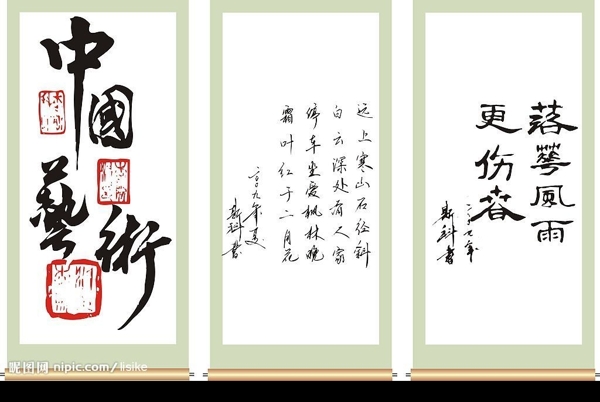 中國
藝術
远上寒山石径斜
白云深处有人家
停车坐爱枫林晚
霜叶红于二月花
二〇〇九年夏
斯科書
落華風雨
更伤春
二〇〇七年
斯科書
昵图网 nipic.com/lisike